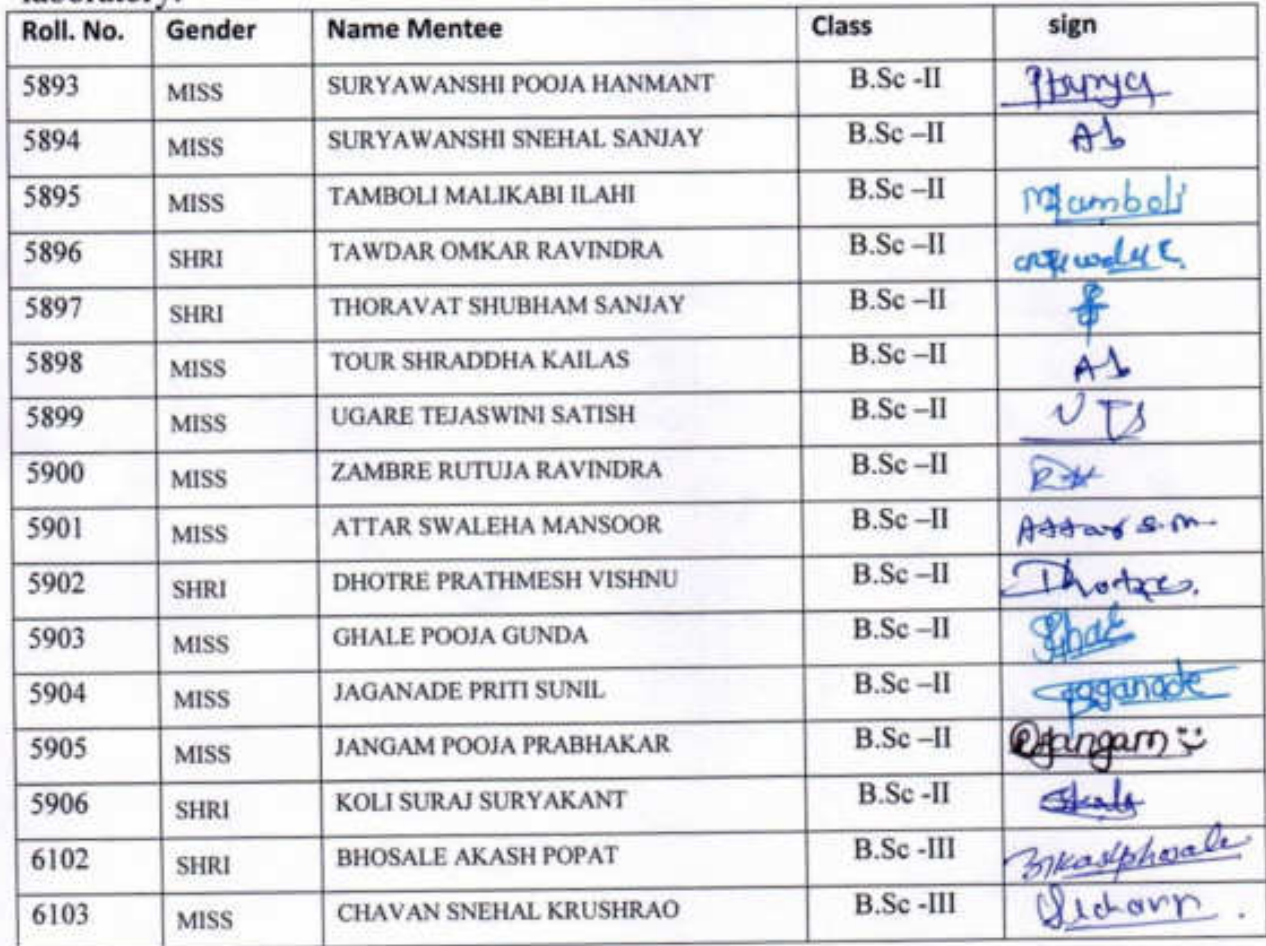 Roll. No. Gender Name Mentee Class sign
5893 MISS SURYAWANSHI POOJA HANMANT B.Sc -II
5894 MISS SURYAWANSHI SNEHAL SANJAY B.Sc –II Ab
5895 MISS TAMBOLI MALIKABI ILAHI B.Sc –II MTamboli
5896 SHRI TAWDAR OMKAR RAVINDRA B.Sc –II
5897 SHRI THORAVAT SHUBHAM SANJAY B.Sc –II
5898 MISS TOUR SHRADDHA KAILAS B.Sc –II Ab
5899 MISS UGARE TEJASWINI SATISH B.Sc –II
5900 MISS ZAMBRE RUTUJA RAVINDRA B.Sc –II
5901 MISS ATTAR SWALEHA MANSOOR B.Sc –II Attar S.M.
5902 SHRI DHOTRE PRATHMESH VISHNU B.Sc –II Dhotre.
5903 MISS GHALE POOJA GUNDA B.Sc –II
5904 MISS JAGANADE PRITI SUNIL B.Sc –II Jaganade
5905 MISS JANGAM POOJA PRABHAKAR B.Sc –II PJangam
5906 SHRI KOLI SURAJ SURYAKANT B.Sc -II
6102 SHRI BHOSALE AKASH POPAT B.Sc -III
6103 MISS CHAVAN SNEHAL KRUSHRAO B.Sc -III